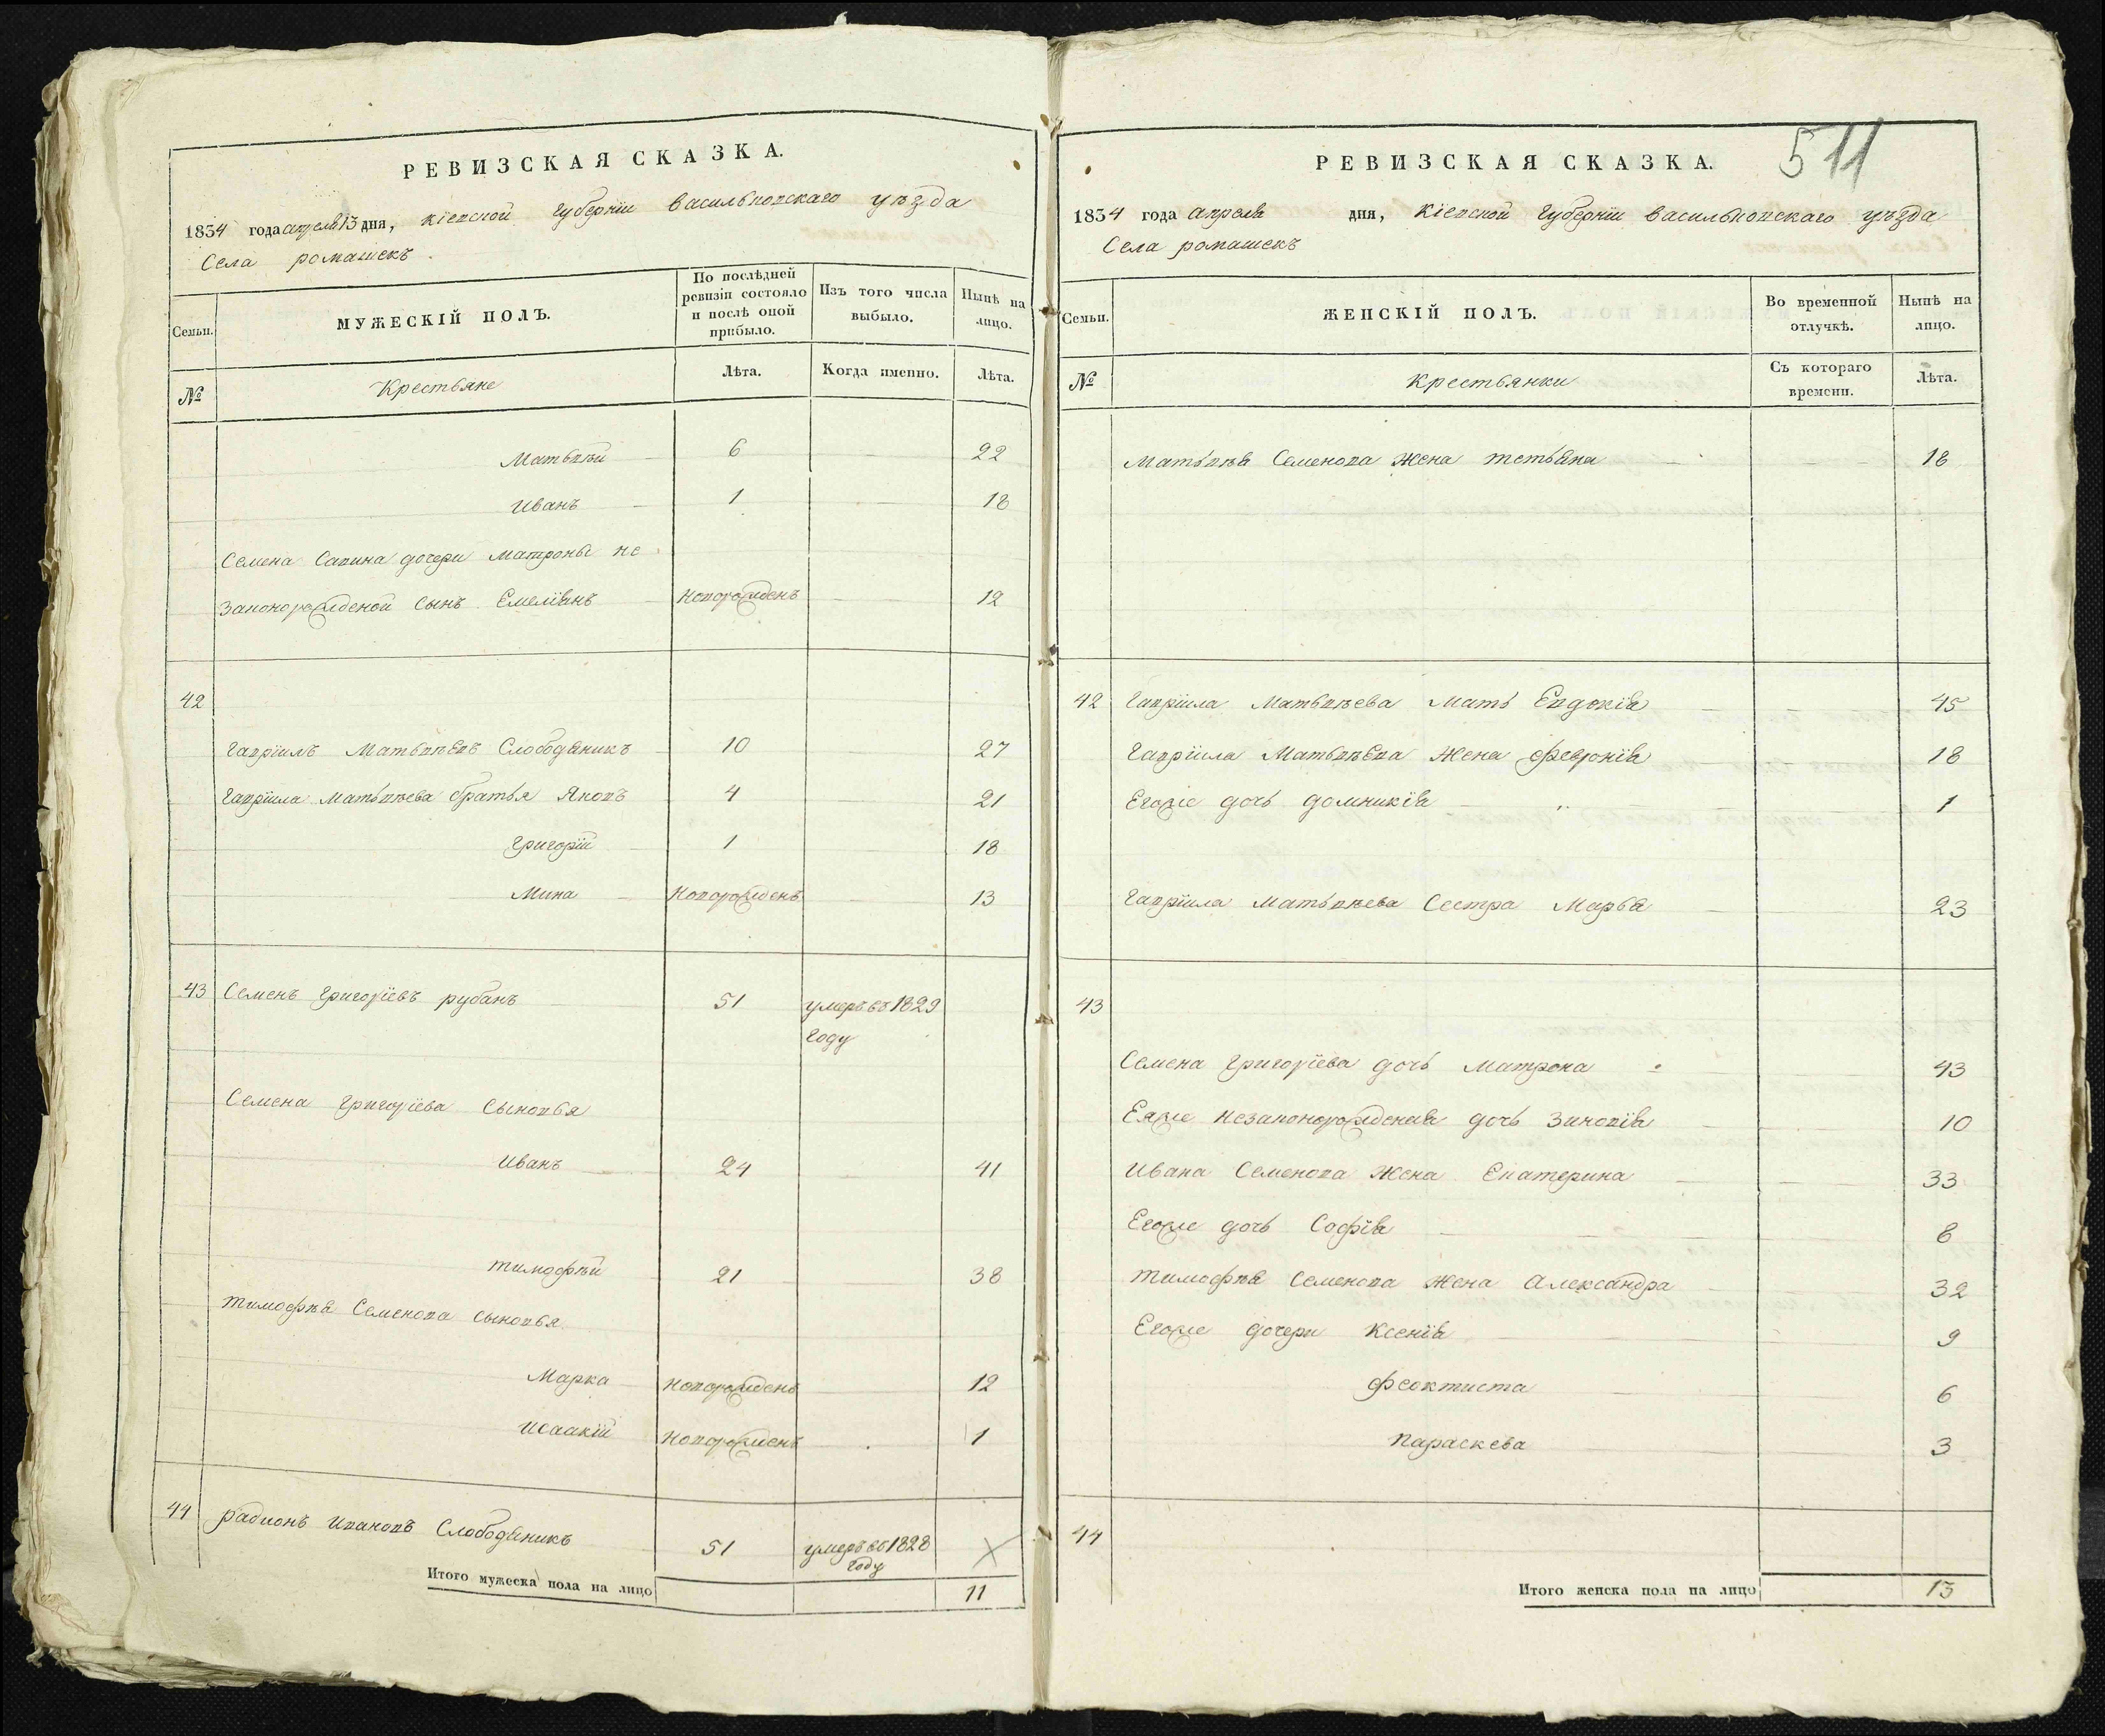 РЕВИЗСКАЯ СКАЗКА.
1834 года апреля 13 дня, кіевской губерніи васильковскаго уѣзда
Села ромашекъ
Семьи.
МУЖЕСКІЙ ПОЛЪ.
По послѣдней ревизіи состояло и послѣ оной прибыло.
Изъ того числа выбыло.
Нынѣ на лицо.
№
Крестьяне
Лѣта.
Когда именно.
Лѣта.
Матвѣй 6 22
Иванъ 1 18
Семена Савина дочери Матроны не
законорожденой сынъ Емеліянъ новорожденъ 12
42
Гавріилъ Матвѣевъ Слободяникъ 10 27
Гавріила Матвѣева братья Яковъ 4 21
Григорій 1 18
Мина Новорожденъ 13
43 Семенъ Григоріевъ рубанъ 51 умеръ въ 1829
году
Семена Григоріева Сыновья
Иванъ 24 41
тимофѣй 21 38
тимофѣя Семенова сыновья
Марка новорожденъ 12
Исаакій Новорожденъ 1
44 радионъ Ивановъ Слободяникъ 51 умеръ въ 1828
году
Итого мужеска пола на лицо 11
511
РЕВИЗСКАЯ СКАЗКА.
1834 года апреля дня, Кіевской Губерніи васильковскаго уѣзда
Села ромашекъ
Семьи.
ЖЕНСКІЙ ПОЛЪ.
Во временной отлучкѣ.
Нынѣ на лицо.
№
Крестьянки
Съ котораго времени.
Лѣта.
Матвѣя Семенова жена тетьяна 18
42 Гавріила Матвѣева Мать Евдокія 45
Гавріила Матвѣева жена Февронія 18
Егоже дочь домникія 1
Гавріила Матвѣева Сестра Марья 23
43
Семена Григоріева дочь Матрона 43
Еяже незаконорожденая дочь Зиновія 10
Ивана Семенова жена Екатерина 33
Егоже дочь Софія 8
тимофѣя Семенова жена Александра 32
Егоже дочери Ксенія 9
Феоктиста 6
Параскева 3
44
Итого женска пола на лицо 13